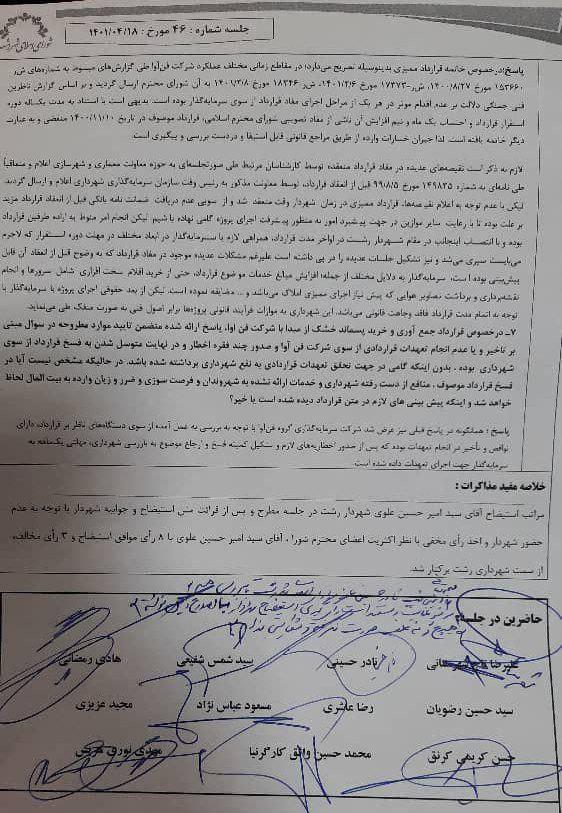 شورای اسلامی شهر رشت
جلسه شماره : ۴۶ مورخ : ۱۴۰۱/۰۴/۱۸
پاسخ:درخصوص خاتمه قرارداد ممیزی بدینوسیله تصریح می‌دارد؛ در مقاطع زمانی مختلف عملکرد شرکت فن‌آوا طی گزارش‌های مبسوط به شماره‌های ش‌ر
۱۵۳۶۶۰ مورخ ۱۴۰۰/۸/۲۷، ش‌ر۱۷۳۷۳ مورخ ۱۴۰۱/۲/۶، ش‌ر ۱۸۳۴۶ مورخ ۱۴۰۱/۳/۸ به آن شورای محترم ارسال گردید و بر اساس گزارش ناظرین
فنی جملگی دلالت بر عدم اقدام موثر در هر یک از مراحل اجرای مفاد قرارداد از سوی سرمایه‌گذار بوده است. بدیهی است با استناد به مدت یکساله دوره
استقرار قرارداد و احتساب یک ماه و نیم افزایش آن ناشی از مفاد تصویبی شورای محترم اسلامی، قرارداد موصوف در تاریخ ۱۴۰۰/۱۱/۱۰ منقضی و به عبارت
دیگر خاتمه یافته است. لذا جبران خسارات وارده از طریق مراجع قانونی قابل استیفا و دردست بررسی و پیگیری است.
لازم به ذکر است نقیصه‌های عدیده در مفاد قرارداد منعقده توسط کارشناسان مرتبط طی صورتجلسه‌ای به حوزه معاونت معماری و شهرسازی اعلام و متعاقباً
طی نامه‌ای به شماره ۱۴۹۸۳۵ مورخ 99/8/5 قبل از انعقاد قرارداد، توسط معاونت مذکور به رئیس وقت سازمان سرمایه‌گذاری شهرداری اعلام و ارسال گردید.
لیکن با عدم توجه به اعلام نقیصه‌ها، قرارداد ممیزی در زمان شهردار وقت منعقد شد و از سویی عدم دریافت ضمانت نامه بانکی قبل از انعقاد قرارداد مزید
بر علت بوده تا با رعایت سایر موازین در جهت پیشبرد امور به منظور پیشرفت اجرای پروژه گامی نهاده با شیم لیکن انجام امر منوط به اراده طرفین قرارداد
بوده و با انتصاب اینجانب در مقام شهردار رشت در اواخر مدت قرارداد، همراهی لازم با سرمایه‌گذار در ابعاد مختلف در مهلت دوره استقرار که لاجرم
می‌بایست سپری می‌شد و نیز تشکیل جلسات عدیده را در پی داشته است علیرغم مشکلات عدیده موجود در مفاد قرارداد که به وضوح قبل از انعقاد آن قابل
پیش‌بینی بوده است، سرمایه‌گذار به دلایل مختلف از جمله؛ افزایش مبالغ خدمات موضوع قرارداد، حتی از خرید اقلام سخت افزاری شامل سرورها و انجام
نقشه‌برداری و برداشت تصاویر هوایی که پیش نیاز اجرای ممیزی املاک می‌باشد و ... مضایقه نموده است. لیکن از بعد حقوقی اجرای پروژه با سرمایه‌گذار با
توجه به اتمام مدت قرارداد فاقد وجاهت قانونی می‌باشد. این شهرداری به موازات فرآیند قانونی پروژه‌ها برابر اصول فنی به صورت منفک طی می‌نماید.
۷-درخصوص قرارداد جمع آوری و خرید پسماند خشک از مبدا با شرکت فن آوا، پاسخ ارائه شده متضمن تایید موارد مطروحه در سوال مبنی
بر تاخیر و یا عدم انجام تعهدات قراردادی از سوی شرکت فن آوا و صدور چند فقره اخطار و در نهایت متوسل شدن به فسخ قرارداد از سوی
شهرداری بوده ، بدون اینکه گامی در جهت تحقق تعهدات قراردادی به نفع شهرداری برداشته شده باشد. در حالیکه مشخص نیست آیا در
فسخ قرارداد موصوف ، منافع از دست رفته شهرداری و خدمات ارائه نشده به شهروندان و فرصت سوزی و ضرر و زیان وارده به بیت المال لحاظ
خواهد شد و اینکه پیش بینی های لازم در متن قرارداد دیده شده است یا خیر؟
پاسخ : همانگونه در پاسخ قبلی نیز عرض شد شرکت سرمایه‌گذاری گروه فن‌آوا با توجه به بررسی به عمل آمده از سوی دستگاه‌های ناظر بر قرارداد، دارای
نواقص و تأخیر در انجام تعهدات بوده که پس از صدور اخطاریه‌های لازم و تشکیل کمیته فسخ و ارجاع موضوع به بازرسی شهرداری، مهلتی یک‌ماهه به
سرمایه‌گذار جهت اجرای تعهدات داده شده است.
خلاصه مفید مذاکرات :
مراتب استیضاح آقای سید امیر حسین علوی شهردار رشت در جلسه مطرح و پس از قرائت متن استیضاح و جوابیه شهردار با توجه به عدم
حضور شهردار و اخذ رأی مخفی با نظر اکثریت اعضای محترم شورا ، آقای سید امیر حسین علوی با ۸ رأی موافق استیضاح و ۳ رأی مخالف،
از سمت شهرداری رشت برکنار شد.
حاضرین در جلسه:
نادر حسینی سید شمس شفیعی هادی رمضانی
سید حسین رضویان رضا عاشری مسعود عباس نژاد مجید عزیزی
حسن کریمی کرنق محمد حسین واثق کارگرنیا مهدی نوری